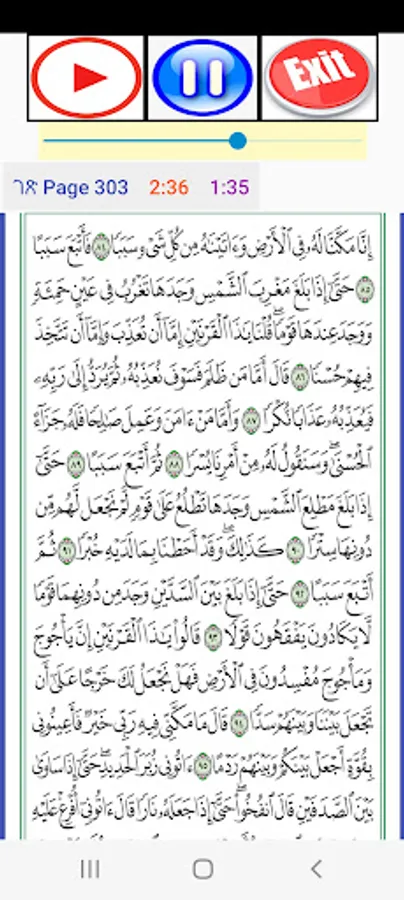 Exit
ገጽ Page 303 2:36 1:35
إِنَّا مَكَّنَّا لَهُۥ فِى ٱلْأَرْضِ وَءَاتَيْنَٰهُ مِن كُلِّ شَىْءٍ سَبَبًا ٨٤ فَأَتْبَعَ سَبَبًا
٨٥ حَتَّىٰٓ إِذَا بَلَغَ مَغْرِبَ ٱلشَّمْسِ وَجَدَهَا تَغْرُبُ فِى عَيْنٍ حَمِئَةٍ
وَوَجَدَ عِندَهَا قَوْمًا ۗ قُلْنَا يَٰذَا ٱلْقَرْنَيْنِ إِمَّآ أَن تُعَذِّبَ وَإِمَّآ أَن تَتَّخِذَ
فِيهِمْ حُسْنًا ٨٦ قَالَ أَمَّا مَن ظَلَمَ فَسَوْفَ نُعَذِّبُهُۥ ثُمَّ يُرَدُّ إِلَىٰ رَبِّهِۦ
فَيُعَذِّبُهُۥ عَذَابًا نُّكْرًا ٨٧ وَأَمَّا مَنْ ءَامَنَ وَعَمِلَ صَٰلِحًا فَلَهُۥ جَزَآءً
ٱلْحُسْنَىٰ ۖ وَسَنَقُولُ لَهُۥ مِنْ أَمْرِنَا يُسْرًا ٨٨ ثُمَّ أَتْبَعَ سَبَبًا ٨٩ حَتَّىٰٓ
إِذَا بَلَغَ مَطْلِعَ ٱلشَّمْسِ وَجَدَهَا تَطْلُعُ عَلَىٰ قَوْمٍ لَّمْ نَجْعَل لَّهُم مِّن
دُونِهَا سِتْرًا ٩٠ كَذَٰلِكَ ۖ وَقَدْ أَحَطْنَا بِمَا لَدَيْهِ خُبْرًا ٩١ ثُمَّ
أَتْبَعَ سَبَبًا ٩٢ حَتَّىٰٓ إِذَا بَلَغَ بَيْنَ ٱلسَّدَّيْنِ وَجَدَ مِن دُونِهِمَا قَوْمًا
لَّا يَكَادُونَ يَفْقَهُونَ قَوْلًا ٩٣ قَالُوا۟ يَٰذَا ٱلْقَرْنَيْنِ إِنَّ يَأْجُوجَ
وَمَأْجُوجَ مُفْسِدُونَ فِى ٱلْأَرْضِ فَهَلْ نَجْعَلُ لَكَ خَرْجًا عَلَىٰٓ أَن
تَجْعَلَ بَيْنَنَا وَبَيْنَهُمْ سَدًّا ٩٤ قَالَ مَا مَكَّنِّى فِيهِ رَبِّى خَيْرٌ فَأَعِينُونِى
بِقُوَّةٍ أَجْعَلْ بَيْنَكُمْ وَبَيْنَهُمْ رَدْمًا ٩٥ ءَاتُونِى زُبَرَ ٱلْحَدِيدِ ۖ حَتَّىٰٓ إِذَا سَاوَىٰ
بَيْنَ ٱلصَّدَفَيْنِ قَالَ ٱنفُخُوا۟ ۖ حَتَّىٰٓ إِذَا جَعَلَهُۥ نَارًا قَالَ ءَاتُونِىٓ أُفْرِغْ عَلَيْهِ